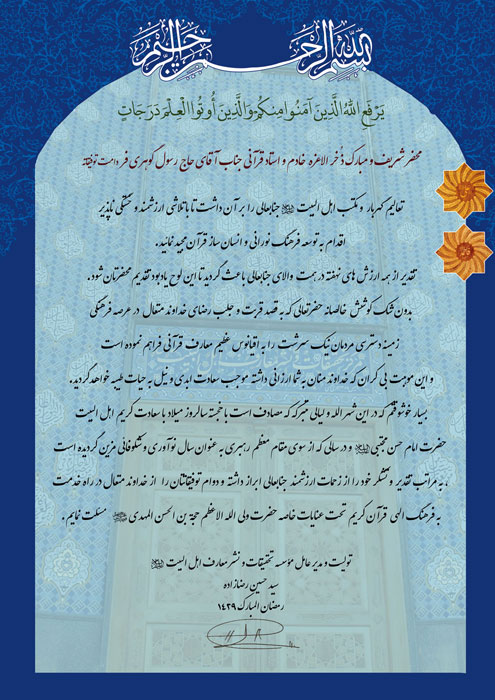 بسم الله الرحمن الرحیم
يَرْفَعِ اللَّهُ الَّذِينَ آمَنُوا مِنكُمْ وَالَّذِينَ أُوتُوا الْعِلْمَ دَرَجَاتٍ
محضر شریف و مبارک ذخر الاعزه خادم و استاد قرآنی جناب آقای حاج رسول گوهری فر دامت توفیقاته
تعالیم گهربار و مکتب اهل البیت جنابعالی را بر آن داشت تا با تلاشی ارزشمند و خستگی ناپذیر
اقدام به توسعه فرهنگ نورانی و انسان ساز قرآن مجید نمائید.
تقدیر از همه ارزش های نهفته در همت والای جنابعالی باعث گردید تا این لوح یادبود تقدیم محضرتان شود.
بدون شک کوشش خالصانه حضرتعالی که به قصد قربت و جلب رضای خداوند متعال در عرصه فرهنگی
زمینه دسترسی مردمان نیک سرشت را به اقیانوس عظیم معارف قرآنی فراهم نموده است
و این موهبت بی کران که خداوند منان به شما ارزانی داشته موجب سعادت ابدی و نیل به حیات طیبه خواهد گردید.
بسیار خوشوقتم که در این شهر الله و لیالی متبرکه که مصادف است با خجسته سالروز میلاد با سعادت کریم اهل البیت
حضرت امام حسن مجتبی و در سالی که از سوی مقام معظم رهبری به عنوان سال نوآوری و شکوفائی مزین گردیده است
، به مراتب تقدیر و تشکر خود را از زحمات ارزشمند جنابعالی ابراز داشته و دوام توفیقاتتان را از خداوند متعال در راه خدمت
به فرهنگ الهی قرآن کریم تحت عنایات خاصه حضرت ولی الله الاعظم حجة بن الحسن المهدی مسئلت نمایم .
تولیت و مدیر عامل مؤسسه تحقیقات و نشر معارف اهل البیت
سید حسین رضازاده
رمضان المبارک ۱۴۲۹